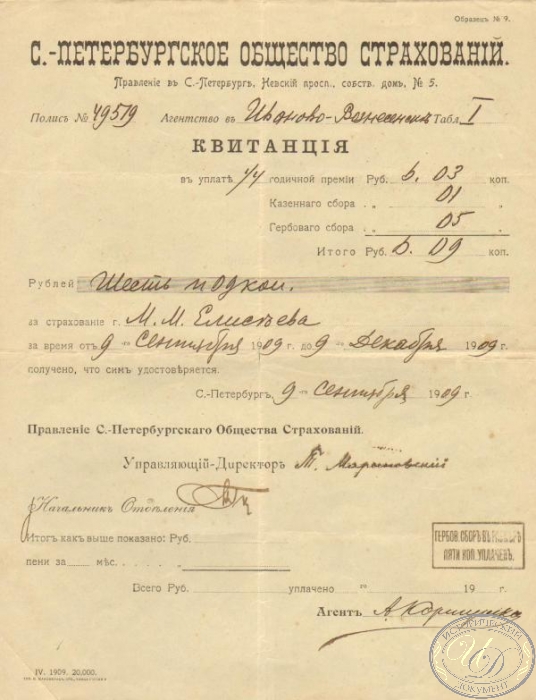 Образецъ № 9.
С.-ПЕТЕРБУРГСКОЕ ОБЩЕСТВО СТРАХОВАНІЙ.
Правленіе въ С.-Петербургѣ, Невскій просп., собств. домъ, № 5.
Полисъ № 49579 Агентство въ Иваново-Вознесенскѣ Табл. I
КВИТАНЦІЯ
въ уплатѣ 1/4 годичной преміи Руб. 6. 03 коп.
Казеннаго сбора „ 01 „
Гербоваго сбора „ 05 „
Итого Руб. 6. 09 коп.
Рублей Шесть 09 коп.
за страхованіе г. М. М. Елисѣева
за время отъ 9 го Сентября 1909 г. до 9 го Декабря 1909 г.
получено, что симъ удостовѣряется.
С.-Петербургъ, 9 го сентября 1909 г.
Правленіе С.-Петербургскаго Общества Страхованій.
Управляющій-Директоръ
Начальникъ Отдѣленія
Итогъ какъ выше показано: Руб.
пени за мѣс. „
Всего Руб. уплачено го 19 г.
Агентъ
ГЕРБОВ. СБОРЪ ВЪ РАЗМѢРѢ
ПЯТИ КОП. УПЛАЧЕНЪ.
IV. 1909. 20,000.
ИСТОРИЧЕСКИЙ
ИД
ДОКУМЕНТ